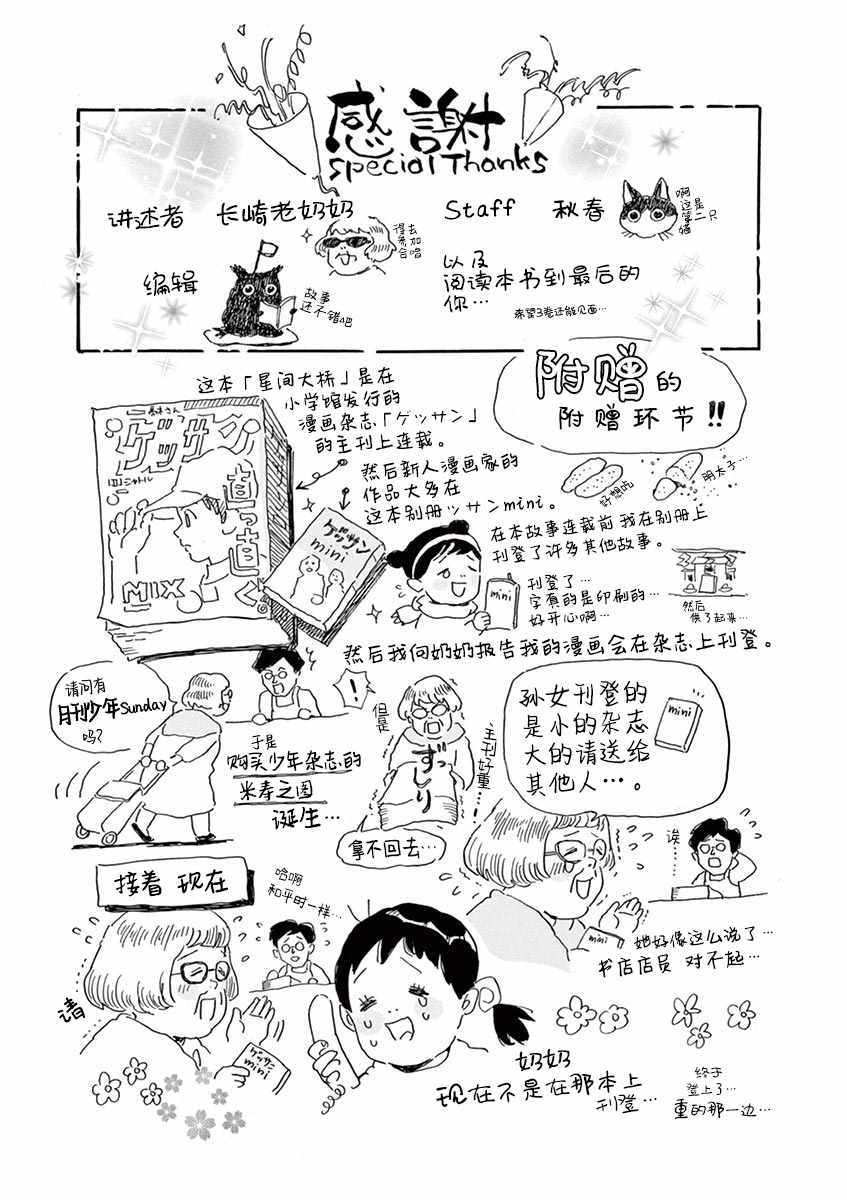 感謝
Special Thanks
讲述者 长崎老奶奶
得去
参加
合唱
Staff 秋春
啊
这是
第二只
猫
编辑
故事
还不错吧
以及
阅读本书到最后的
你…
希望3卷还能见面…
附赠的
附赠环节!!
这本「星间大桥」是在
小学馆发行的
漫画杂志「ゲッサン」
的主刊上连载。
然后新人漫画家的
作品大多在
这本别册ッサンmini。
ゲッサン
直っ直ぐ
MIX
ゲッサン
mini
好想吃
明太子…
在本故事连载前 我在别册上
刊登了许多其他故事。
刊登了…
字真的是印刷的…
好开心啊…
mini
然后
供了起来…
然后我向奶奶报告我的漫画会在杂志上刊登。
请问有
月刊少年Sunday
吗?
!
于是
购买少年杂志的
米寿之图
诞生…
但是
主刊好重…
ずっしり
拿不回去…
孙女刊登的
是小的杂志
大的请送给
其他人…。
mini
诶…
mini
她好像这么说了…
书店店员 对不起…
接着 现在
哈啊
和平时一样…
请
ゲッサン
mini
奶奶
现在不是在那本上
刊登…
终于
登上了…
重的那一边…